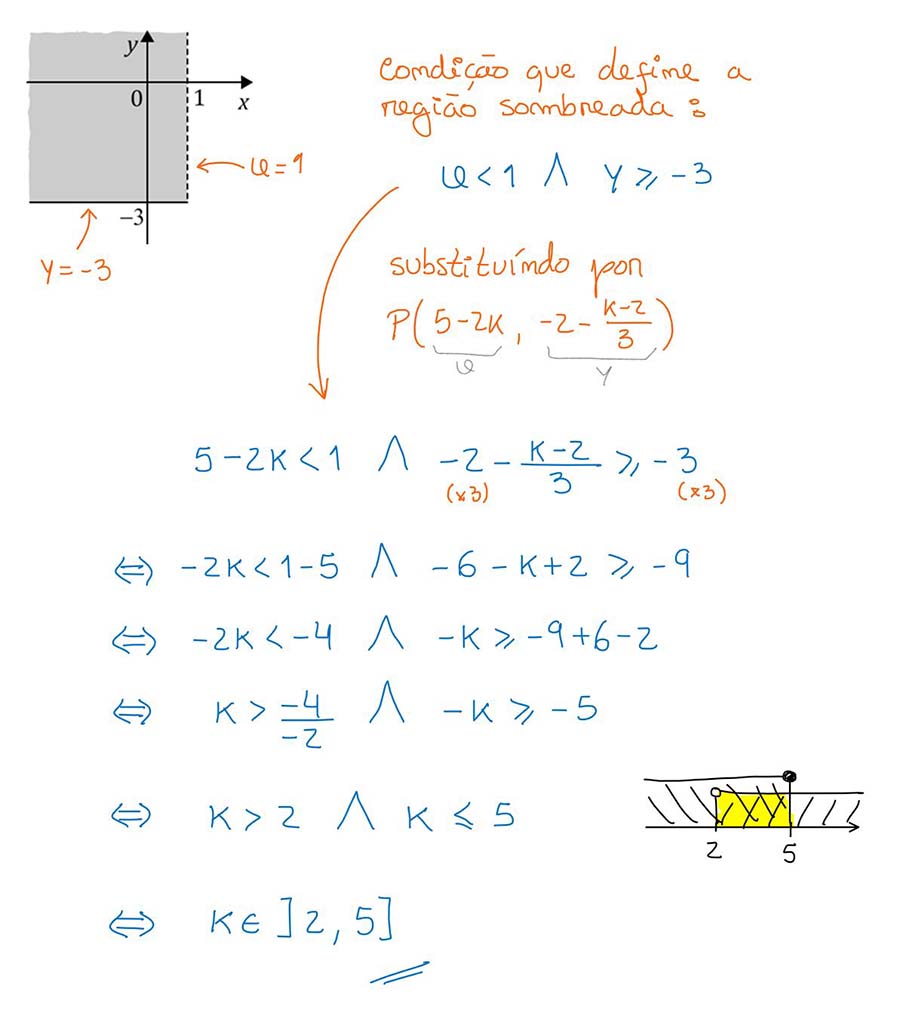 y
0 1 x
-3
x = 1
y = -3
Condição que define a
região sombreada:
x < 1 ∧ y ⩾ -3
substituíndo por
P(5-2k, -2 - \frac{k-2}{3})
x y
5-2k < 1 ∧ -2 - \frac{k-2}{3} ⩾ -3
(×3) (×3)
⇔ -2k < 1-5 ∧ -6 - k + 2 ⩾ -9
⇔ -2k < -4 ∧ -k ⩾ -9 + 6 - 2
⇔ k > \frac{-4}{-2} ∧ -k ⩾ -5
⇔ k > 2 ∧ k ⩽ 5
2 5
⇔ k ∈ ]2, 5]